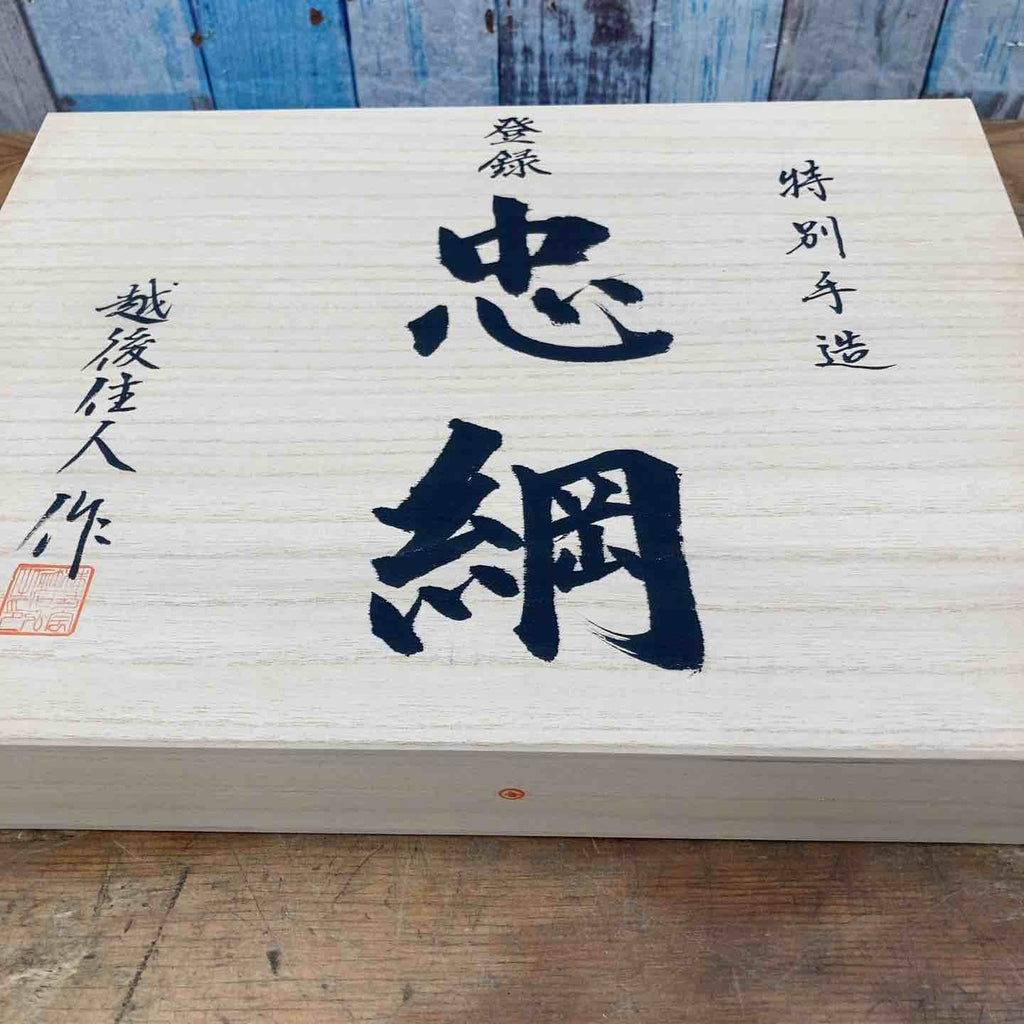 特別手造
登録
忠綱
越後住人作